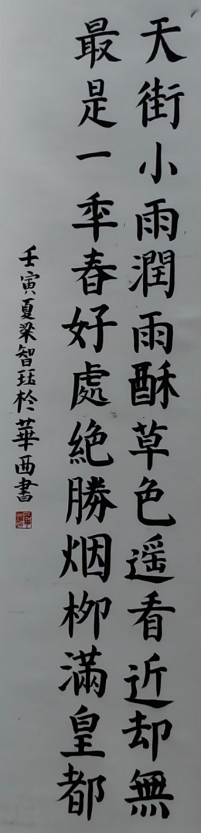 天街小雨潤雨酥草色遥看近却無
最是一年春好處絶勝烟柳滿皇都
壬寅夏梁智珏於華西書